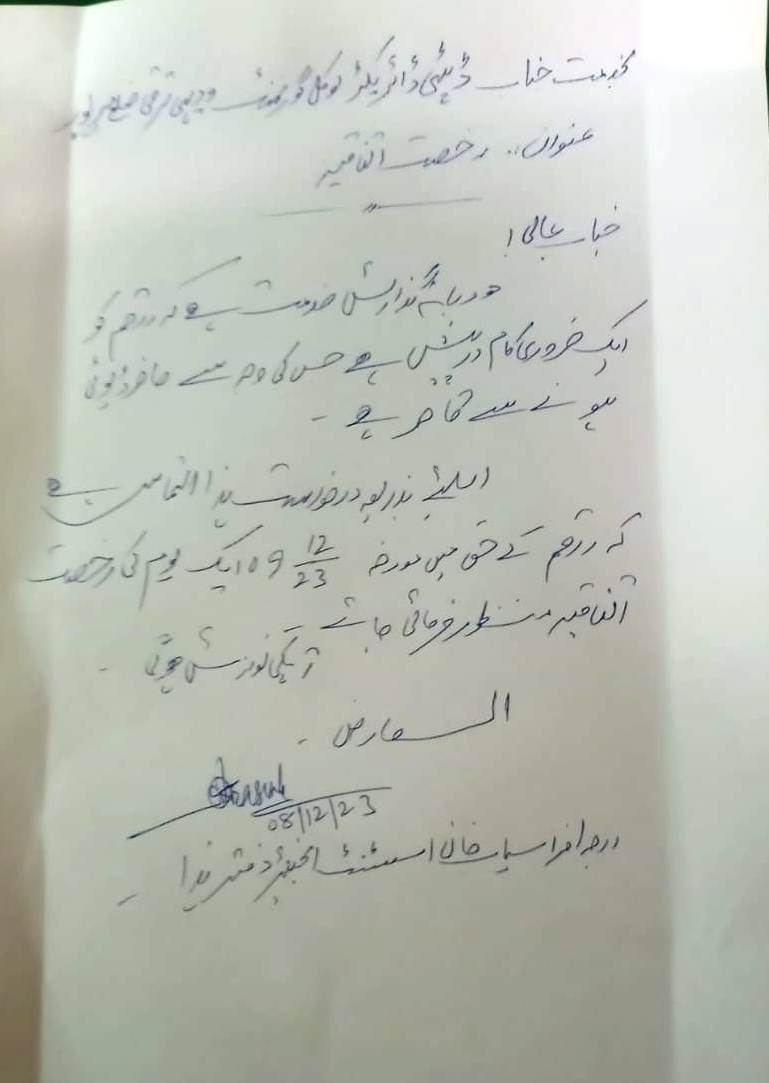 بخدمت جناب ڈپٹی ڈائریکٹر لوکل گورنمنٹ و دیہی ترقی ضلع میرپور
عنوان :۔ رخصت اتفاقیہ
جناب عالی !
مودبانہ گذارش خدمت ہے کہ راقم کو
ایک ضروری کام درپیش ہے جس کی وجہ سے حاضر ڈیوٹی
ہونے سے قاصر ہے ۔
اسلئیے بذریعہ درخواست ہذا التماس ہے
کہ راقم کے حق میں مورخہ 09 12/23 ایک یوم کی رخصت
اتفاقیہ منظور فرمائی جائے
آپکی نوازش ہوگی ۔
العارض ۔
08/12/23
راجہ افراسیاب خان اسسٹنٹ انجینئر دفتر ہذا ۔